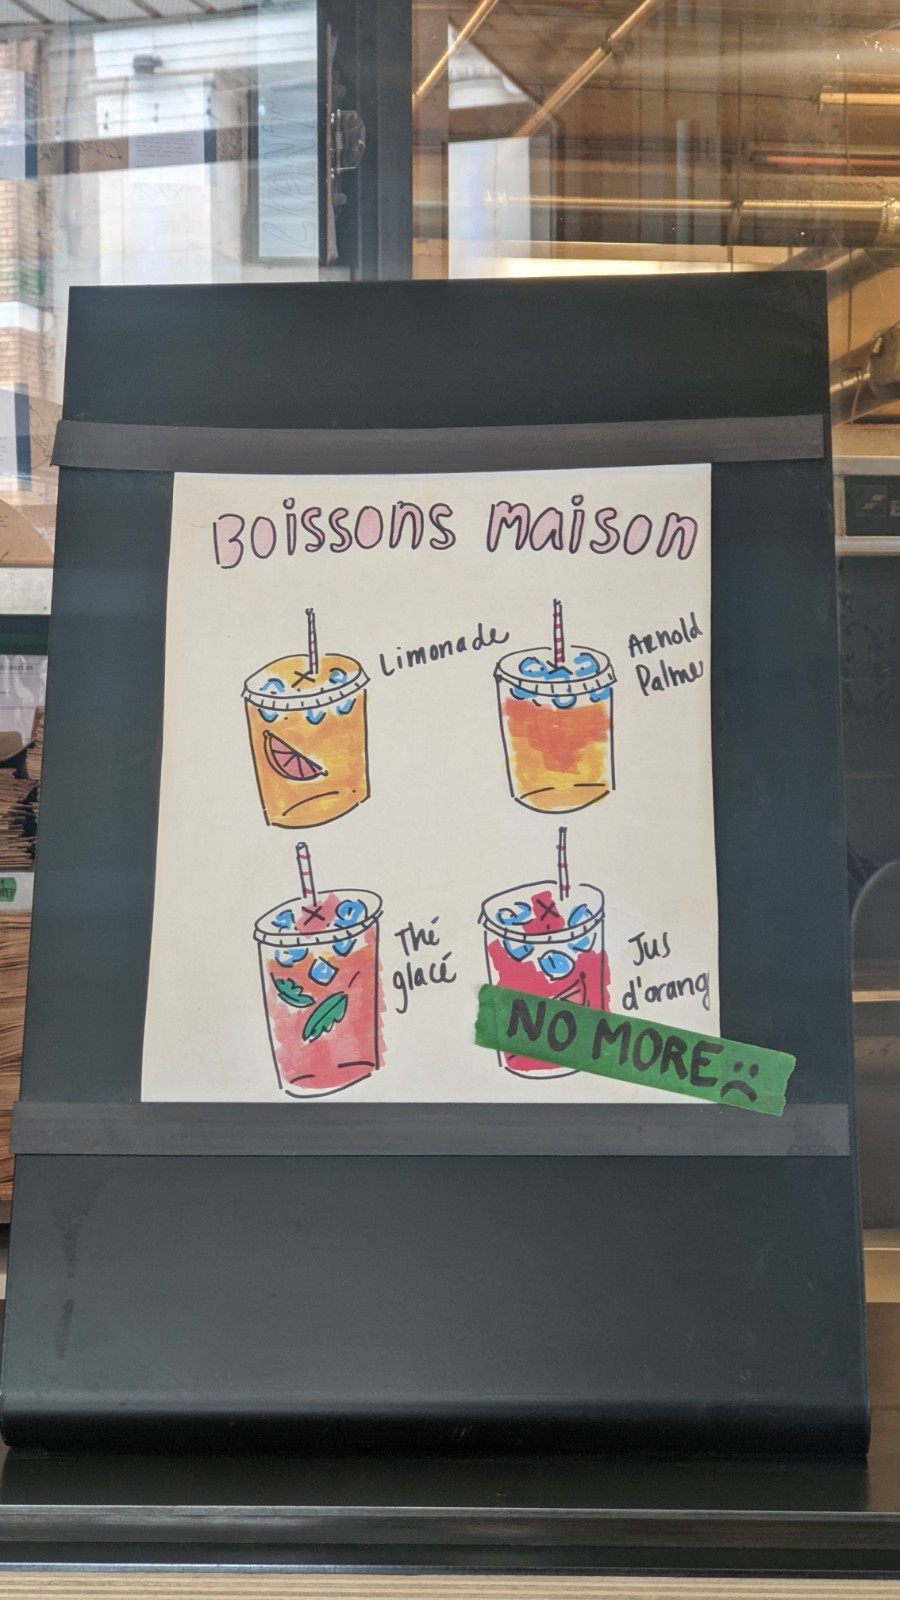 Boissons maison
Limonade
Arnold
Palme
Thé
glacé
Jus
d'orang
NO MORE